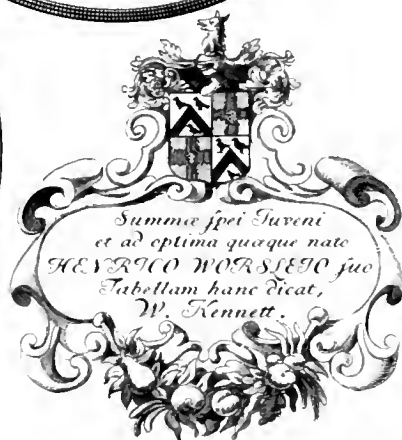 Summæ ſpei Iuveni
et ad optima quæque nato
HENRICO WORSLEIO ſuo
Tabellam hanc dicat,
W. Kennett.